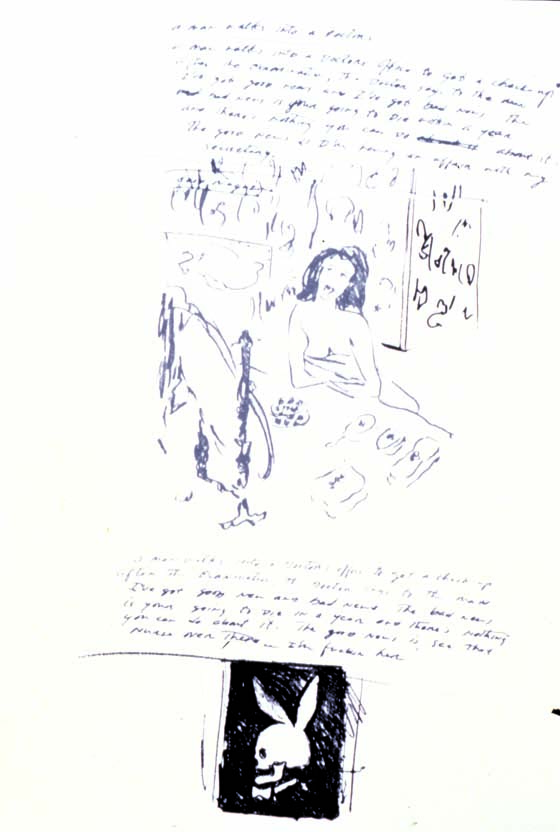 a man walks into a Doctors
a man walks into a Doctors Office to get a check-up
after the examination, the Doctor says to the man
I've got good news and I've got bad news, The
bad news is your going to Die within a year
and there's nothing you can do about it.
The good news is I'm having an affair with my
secretary.
a man walks into a Doctors office to get a check-up
after the examination the Doctor says to the man
I've got good new and Bad news. The bad news
is your going to Die in a year and there's nothing
you can do about it. The good news is, see that
nurse over There I'm fuckin her